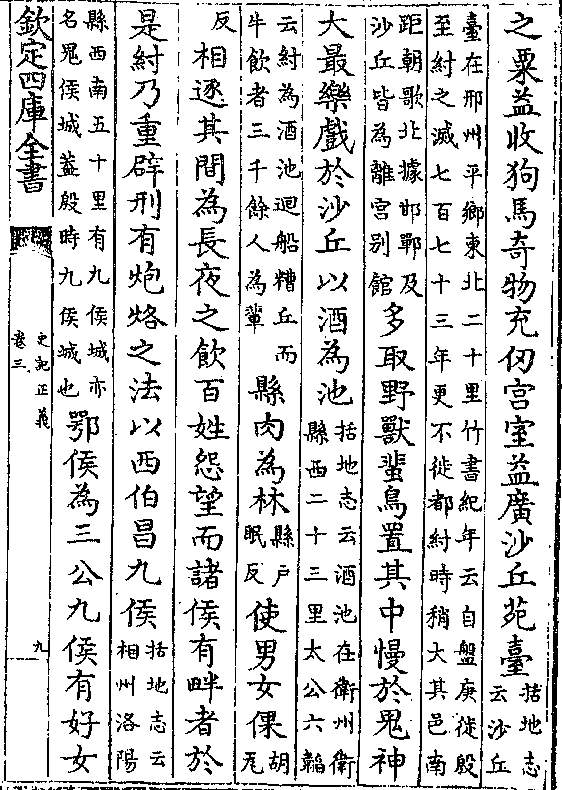 之粟益收狗馬奇物充仞宫室益廣沙丘苑臺括地志
云沙丘
臺在邢州平鄉東北二十里竹書紀年云自盤庚徙殷
至紂之滅七百七十三年更不徙都紂時稍大其邑南
距朝歌北據邯鄲及
沙丘皆為離宫别館多取野獸蜚鳥置其中慢於鬼神
大最樂戲於沙丘以酒為池括地志云酒池在衛州衛
縣西二十三里太公六韜
云紂為酒池迴船糟丘而
牛飲者三千餘人為輩縣肉為林縣户
眠反使男女倮胡
瓦
反相逐其間為長夜之飲百姓怨望而諸侯有畔者於
是紂乃重辟刑有炮烙之法以西伯昌九侯括地志云
相州洛陽
縣西南五十里有九侯城亦
名鬼侯城葢殷時九侯城也鄂侯為三公九侯有好女
欽定四庫全書
史記正義
卷三
九